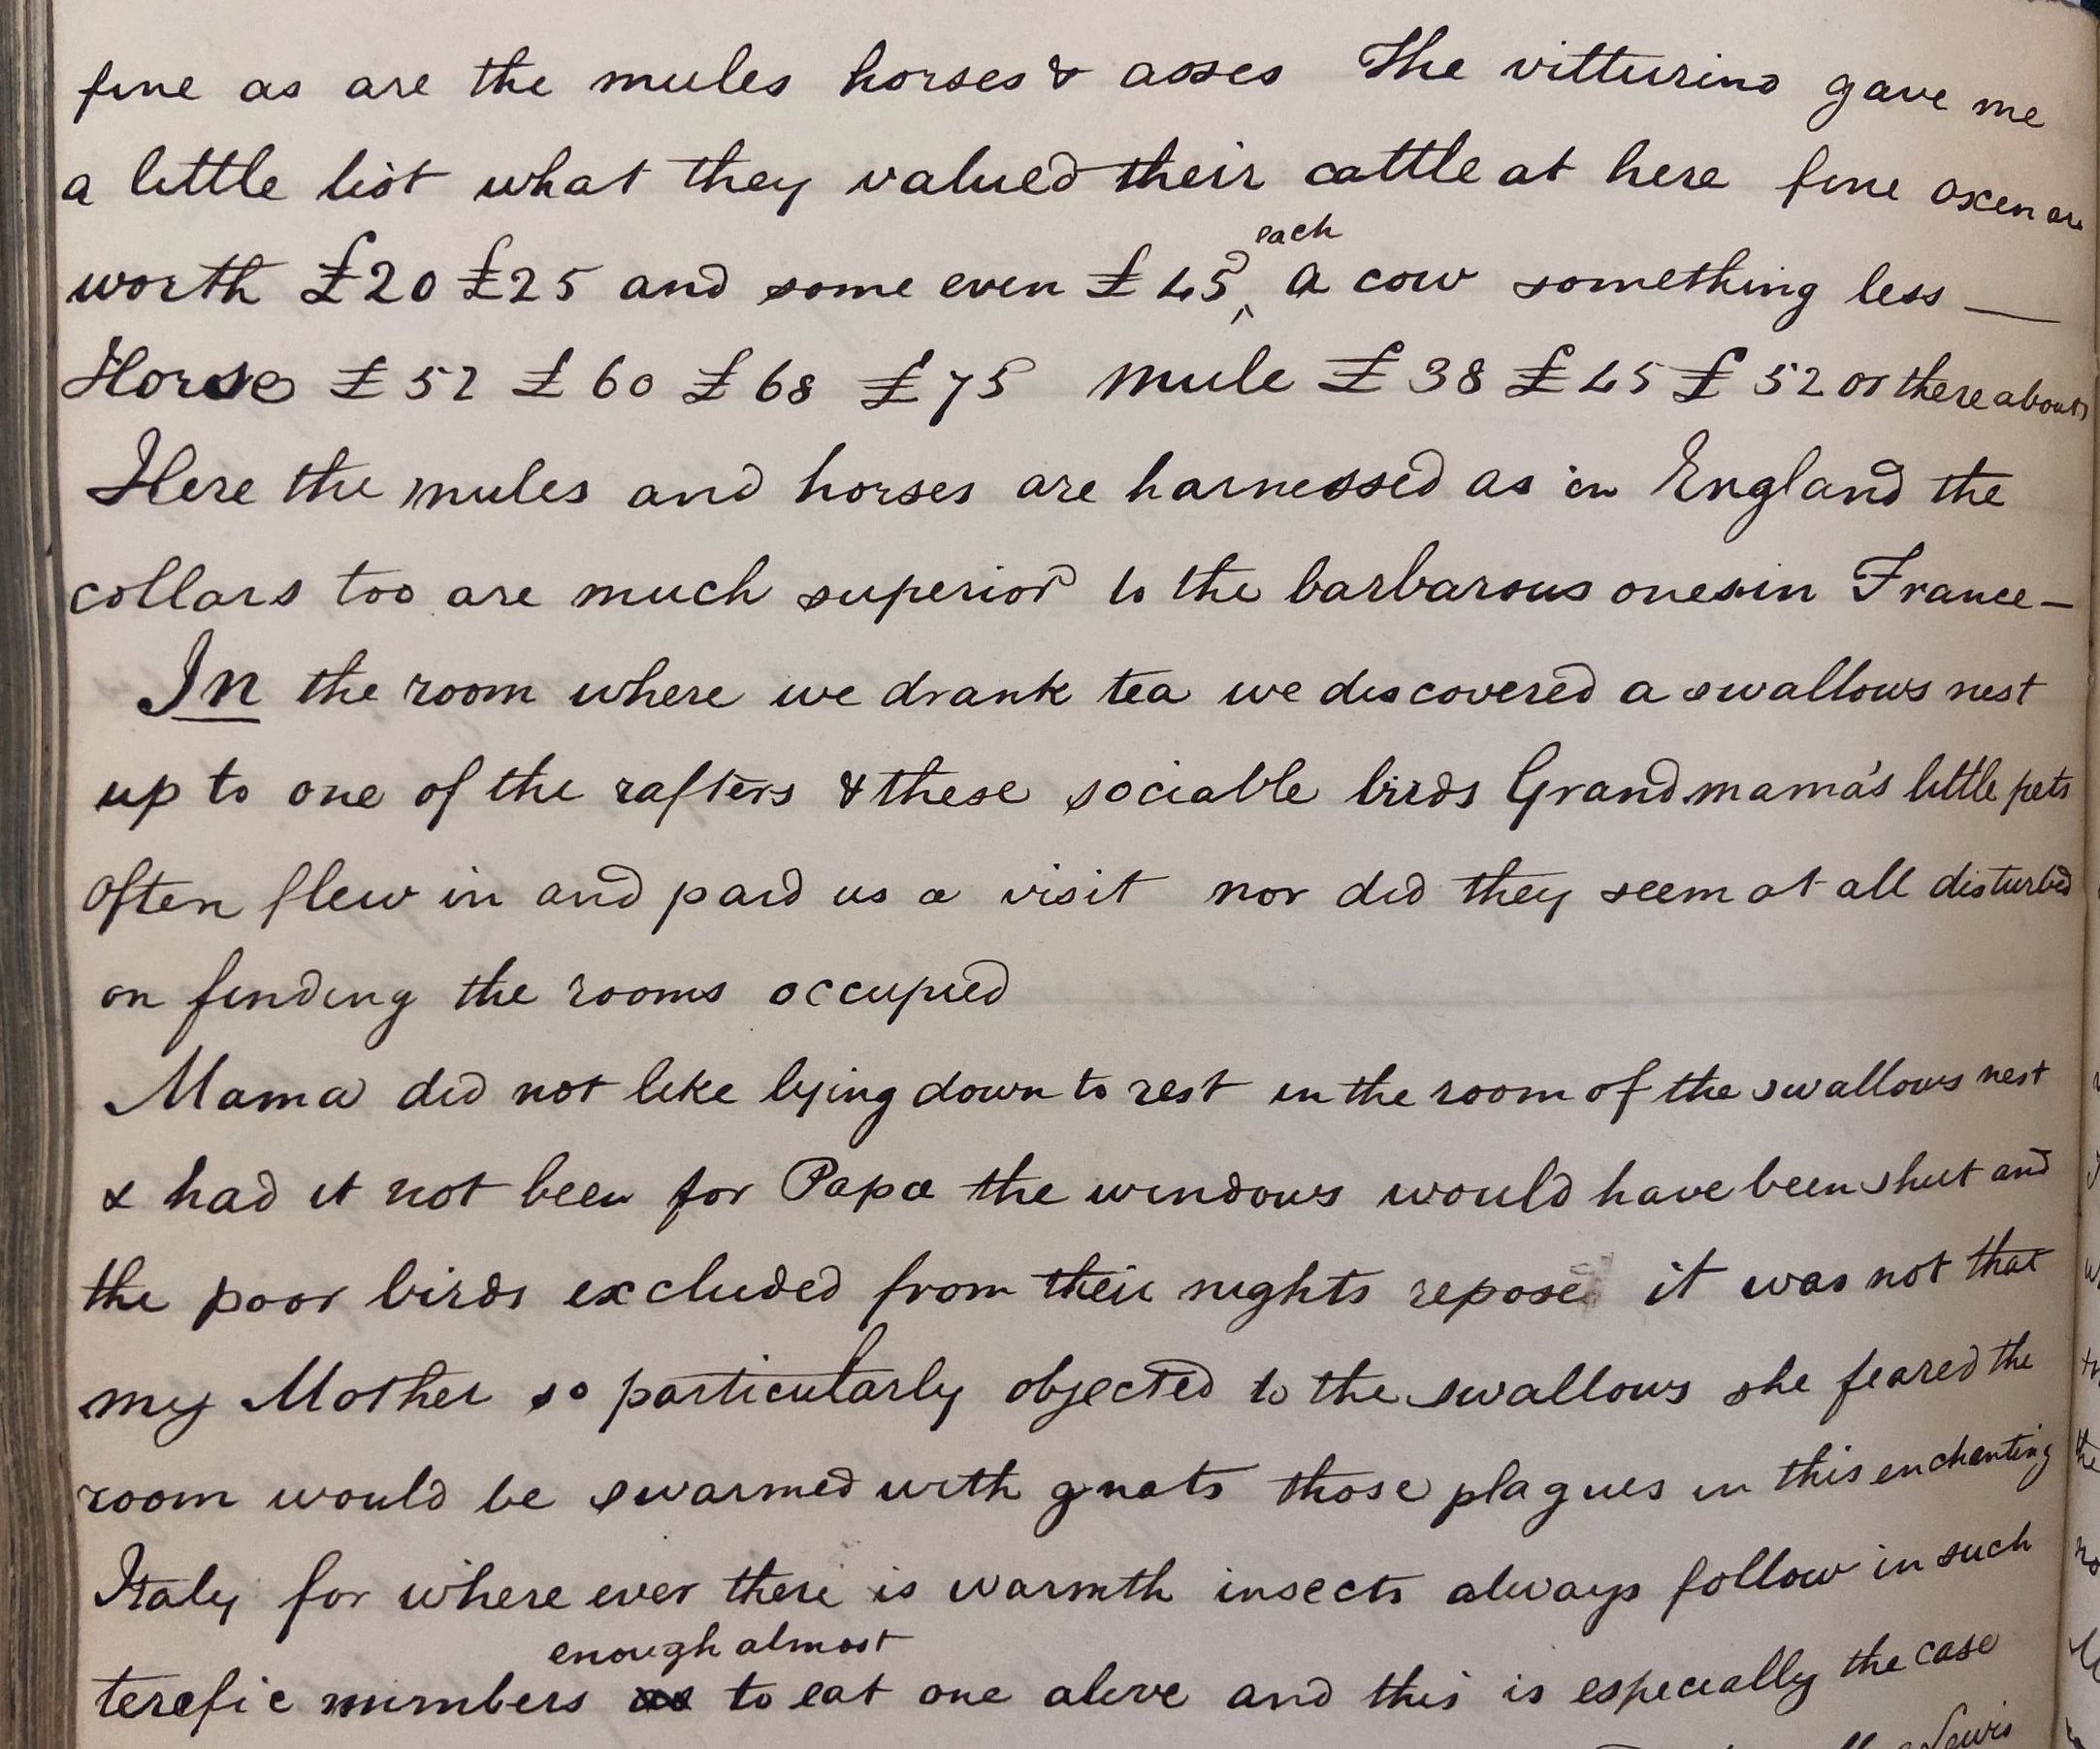 fine as are the mules horses & asses The vitturino gave me
a little list what they valued their cattle at here fine oxen are
worth £20 £25 and some even £45 each a cow something less —
Horse £52 £60 £68 £75 mule £38 £45 £52 or there abouts
Here the mules and horses are harnessed as in England the
collars too are much superior to the barbarous ones in France —
In the room where we drank tea we discovered a swallows nest
up to one of the rafters & these sociable birds Grandmama's little pets
often flew in and paid us a visit nor did they seem at all disturbed
on finding the rooms occupied
Mama did not like lying down to rest in the room of the swallows nest
& had it not been for Papa the windows would have been shut and
the poor birds excluded from their nights repose it was not that
my Mother so particularly objected to the swallows she feared the
room would be swarmed with gnats those plagues in this enchanting
Italy for where ever there is warmth insects always follow in such
terefic numbers enough almost to eat one alive and this is especially the case
Lewis